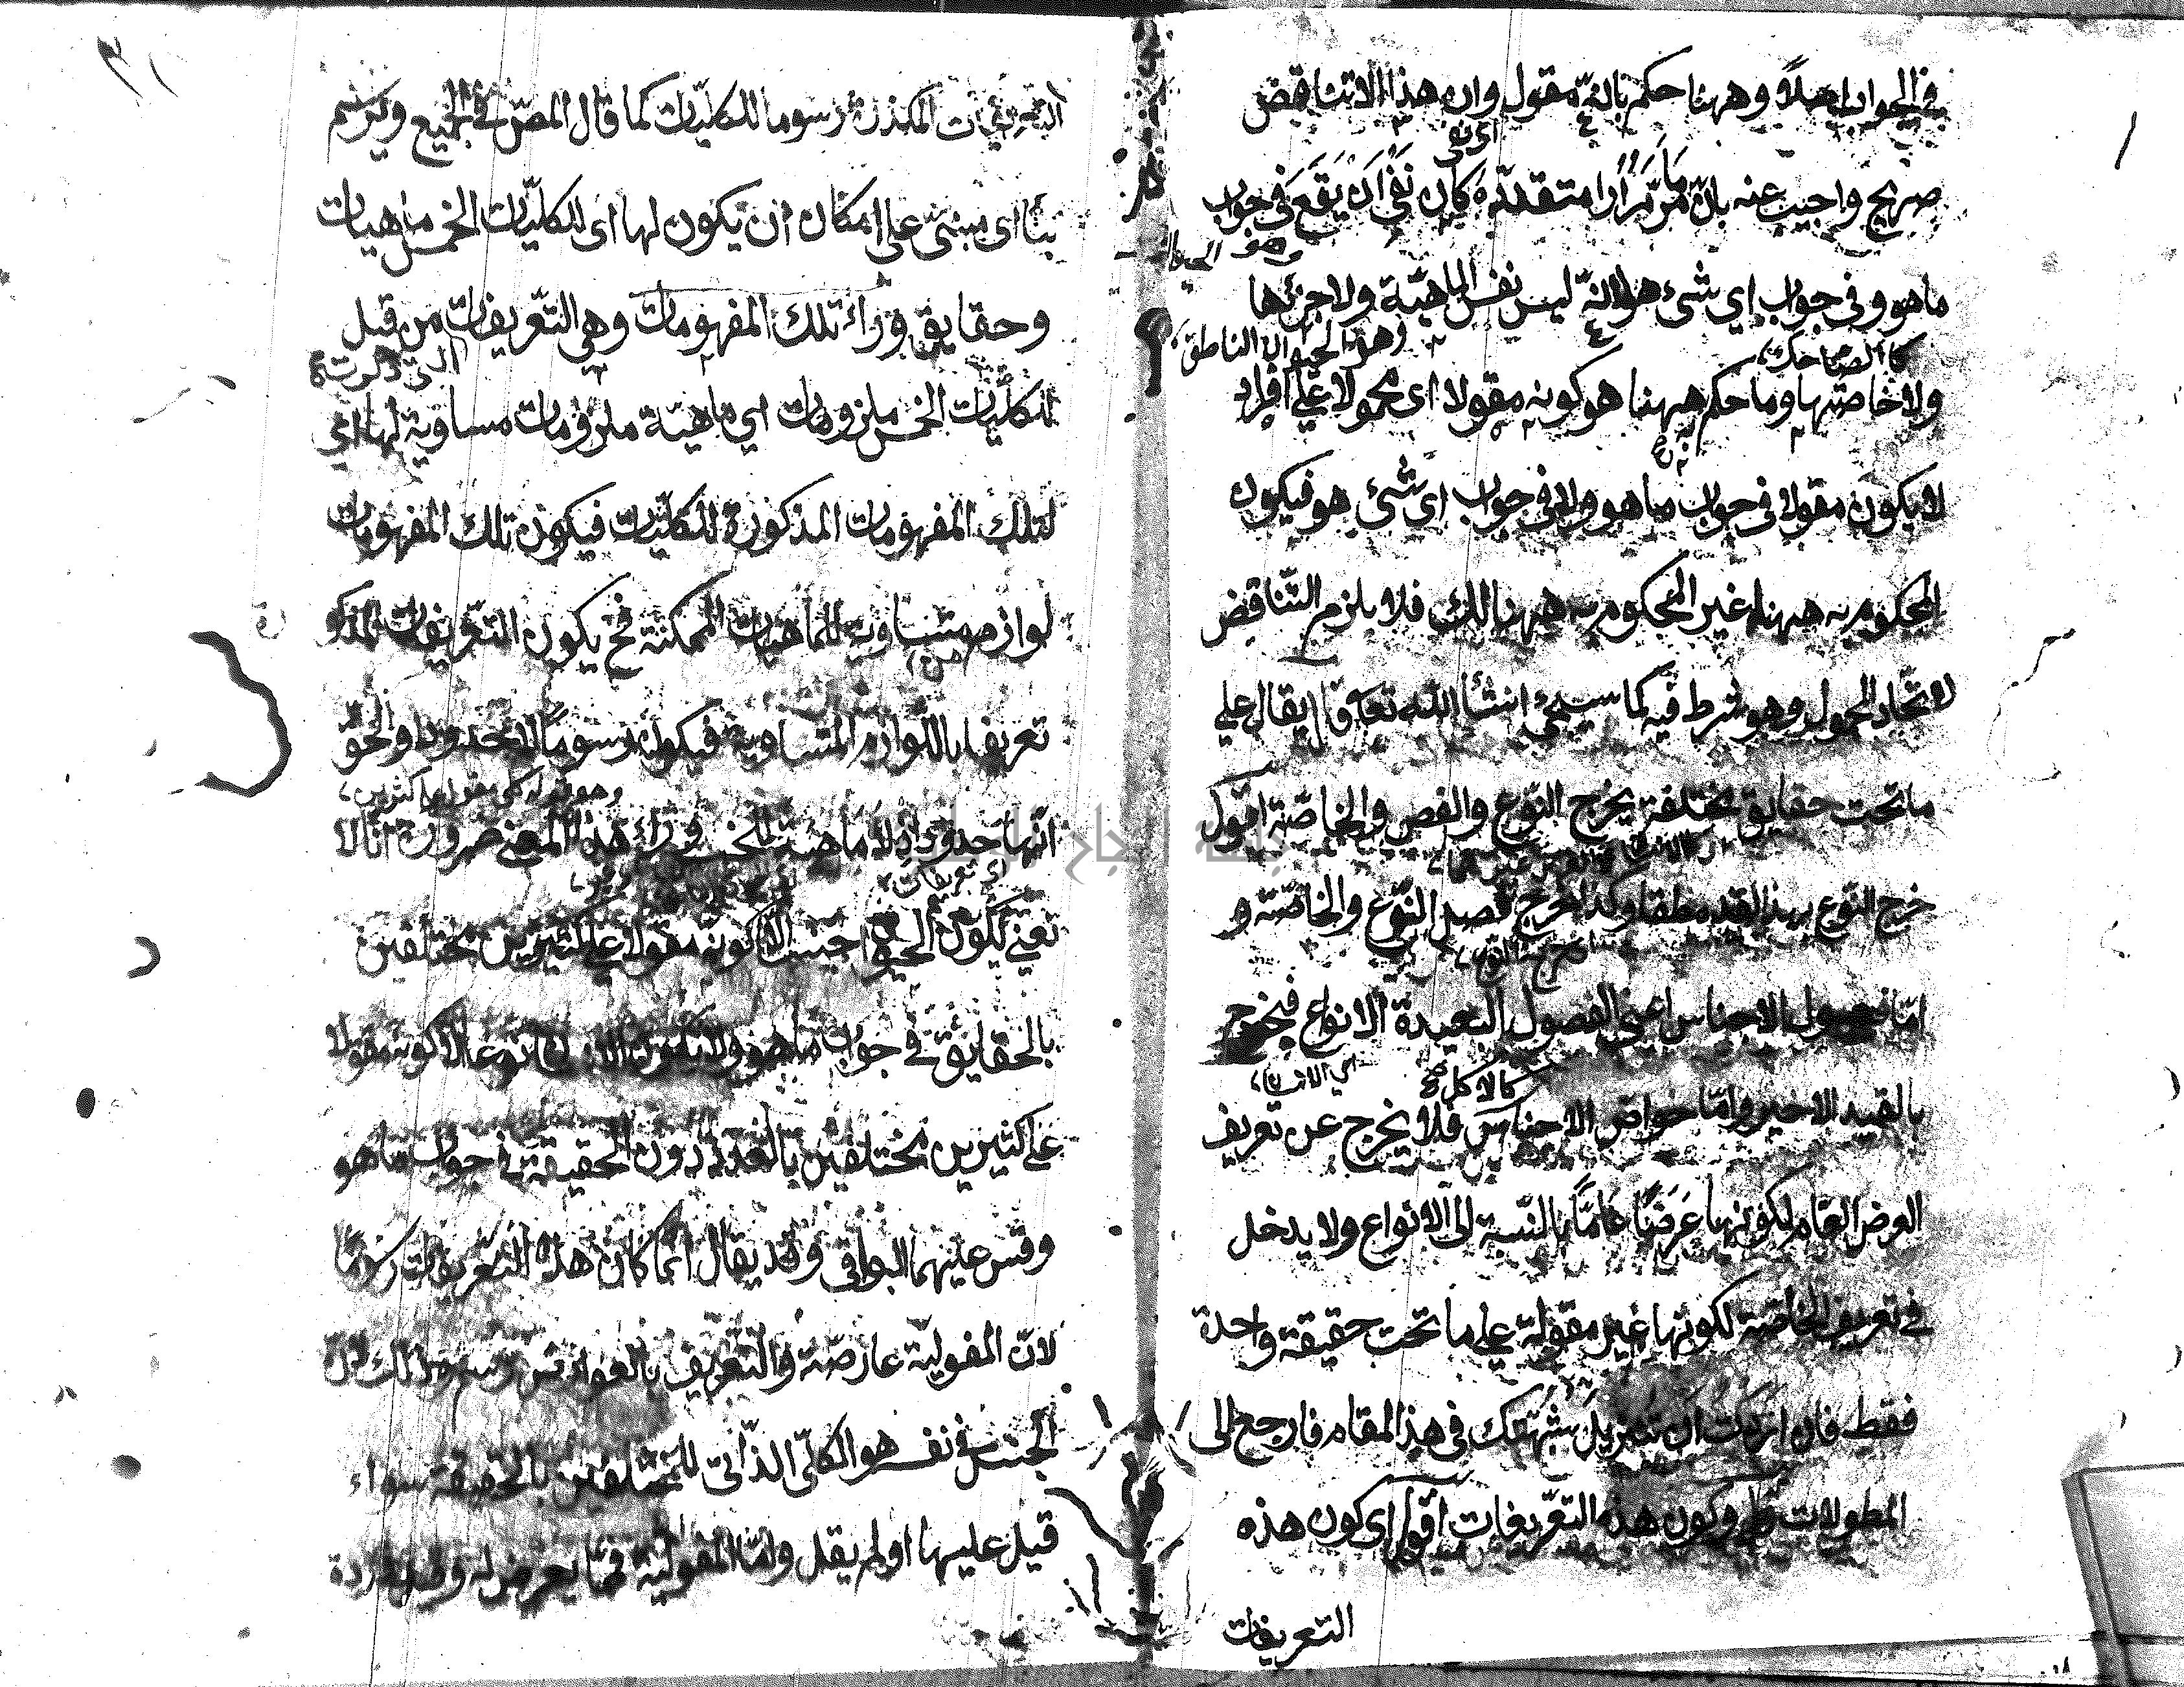 في الجواب اصلاً وههنا حكم بانه مقول وان هذا الا تناقض
صريح واجيب عنه بان ما مرّ مراراً متقدمة كان نفى ان يقع فى جواب
ماهو وفى جواب اي شئ هو لانه ليس نفس الماهية ولا جزئها
ولا خاصتها وما حكم ههنا هو كونه مقولا اى محمولا على افراد
لا يكون مقولا فى جواب ما هو ولا فى جواب اى شئ هو فيكون
المحكوم به ههنا غير المحكوم به هنالك فلا يلزم التناقض
لاتحاد المحمول وهو شرط فيه كما سيجئ انشأ الله تعا قال يقال على
ما تحت حقايق مختلفة يخرج النوع والفصل والخاصة اقول
خرج النوع بهذا القيد مطلقا وكذا خرج فصل النوع والخاصة و
امّا فصول الاجناس اعنى الفصول البعيدة الانواع فيخرج
بالقيد الاخير وامّا خواص الاجناس فلا يخرج عن تعريف
العرض العام لكونها عَرَضًا عامًّا بالنسبة الى الانواع ولا يدخل
في تعريف الخاصة لكونها غير مقولة على ما تحت حقيقة واحدة
فقط فان اردت ان تزيل شبهتك فى هذا المقام فارجع الى
المطولات قال وكون هذه التعريفات اقول اى كون هذه
التعريفات
التعريفات المذكورة رسوما للكليّات كما قال المصّ في الجميع ويرسم
بنأ اى مبنىّ على امكان ان يكون لها اى للكليّات الخمس ماهيات
وحقايق ورأ تلك المفهومات وهي التعريفات من قبل
للكليّات الخمس ملزومات اي ماهية ملزومات مساوية لها اعني
لتلك المفهومات المذكورة للكليّات فيكون تلك المفهومات
لوازم متساوية للماهيات الممكنة فح يكون التعريفات المذكو
تعريفا باللوازم المتساوية فيكون رسومًا لا حدودا والحقّ
انها حدود اذ لا ماهية للخمس ورأ هذا المعنى ضرورة انا لا
نعني لكون الحيوا جنسا الا كونه مقولا على كثيرين مختلفين
بالحقايق في جواب ماهو ولا بكون الانسان نوعا الا كونه مقولا
على كثيرين مختلفين بالعدد دون الحقيقة في جواب ماهو
وقس عليهما البواقى وقد يقال انما كان هذه التعريفات رسومًا
لان المقولية عارضة والتعريف بالعوارض رسم وذلك لان
الجنس في نفسه هو الكلّى الذّاتى للمختلفين بالحقيقة سواء
قيل عليها اولم يقل ولمّا المقولية فمّا يعرض له